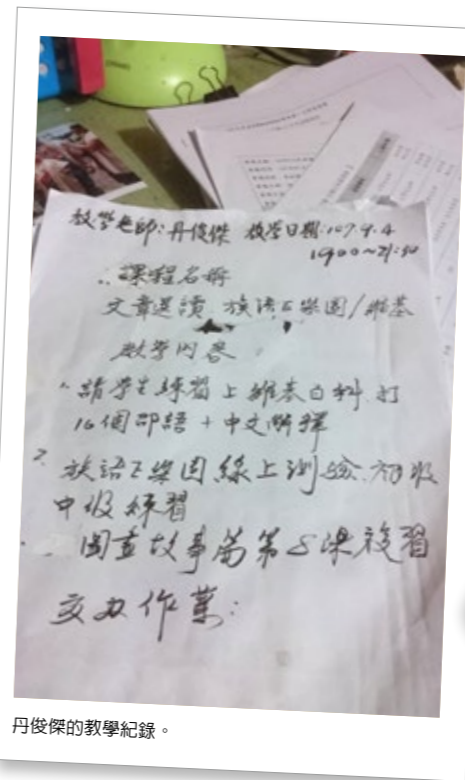 教學老師:丹俊傑 教學日期:107.9.4
1900~21:50
課程名稱
文章選讀、族語E樂園/維基
教學內容
1、請學生練習上維基百科、打
16個邵語+中文解釋
2、族語E樂園線上測驗、初級
中級練習
圖畫故事篇第5課複習
交办作業:
丹俊傑的教學紀錄。